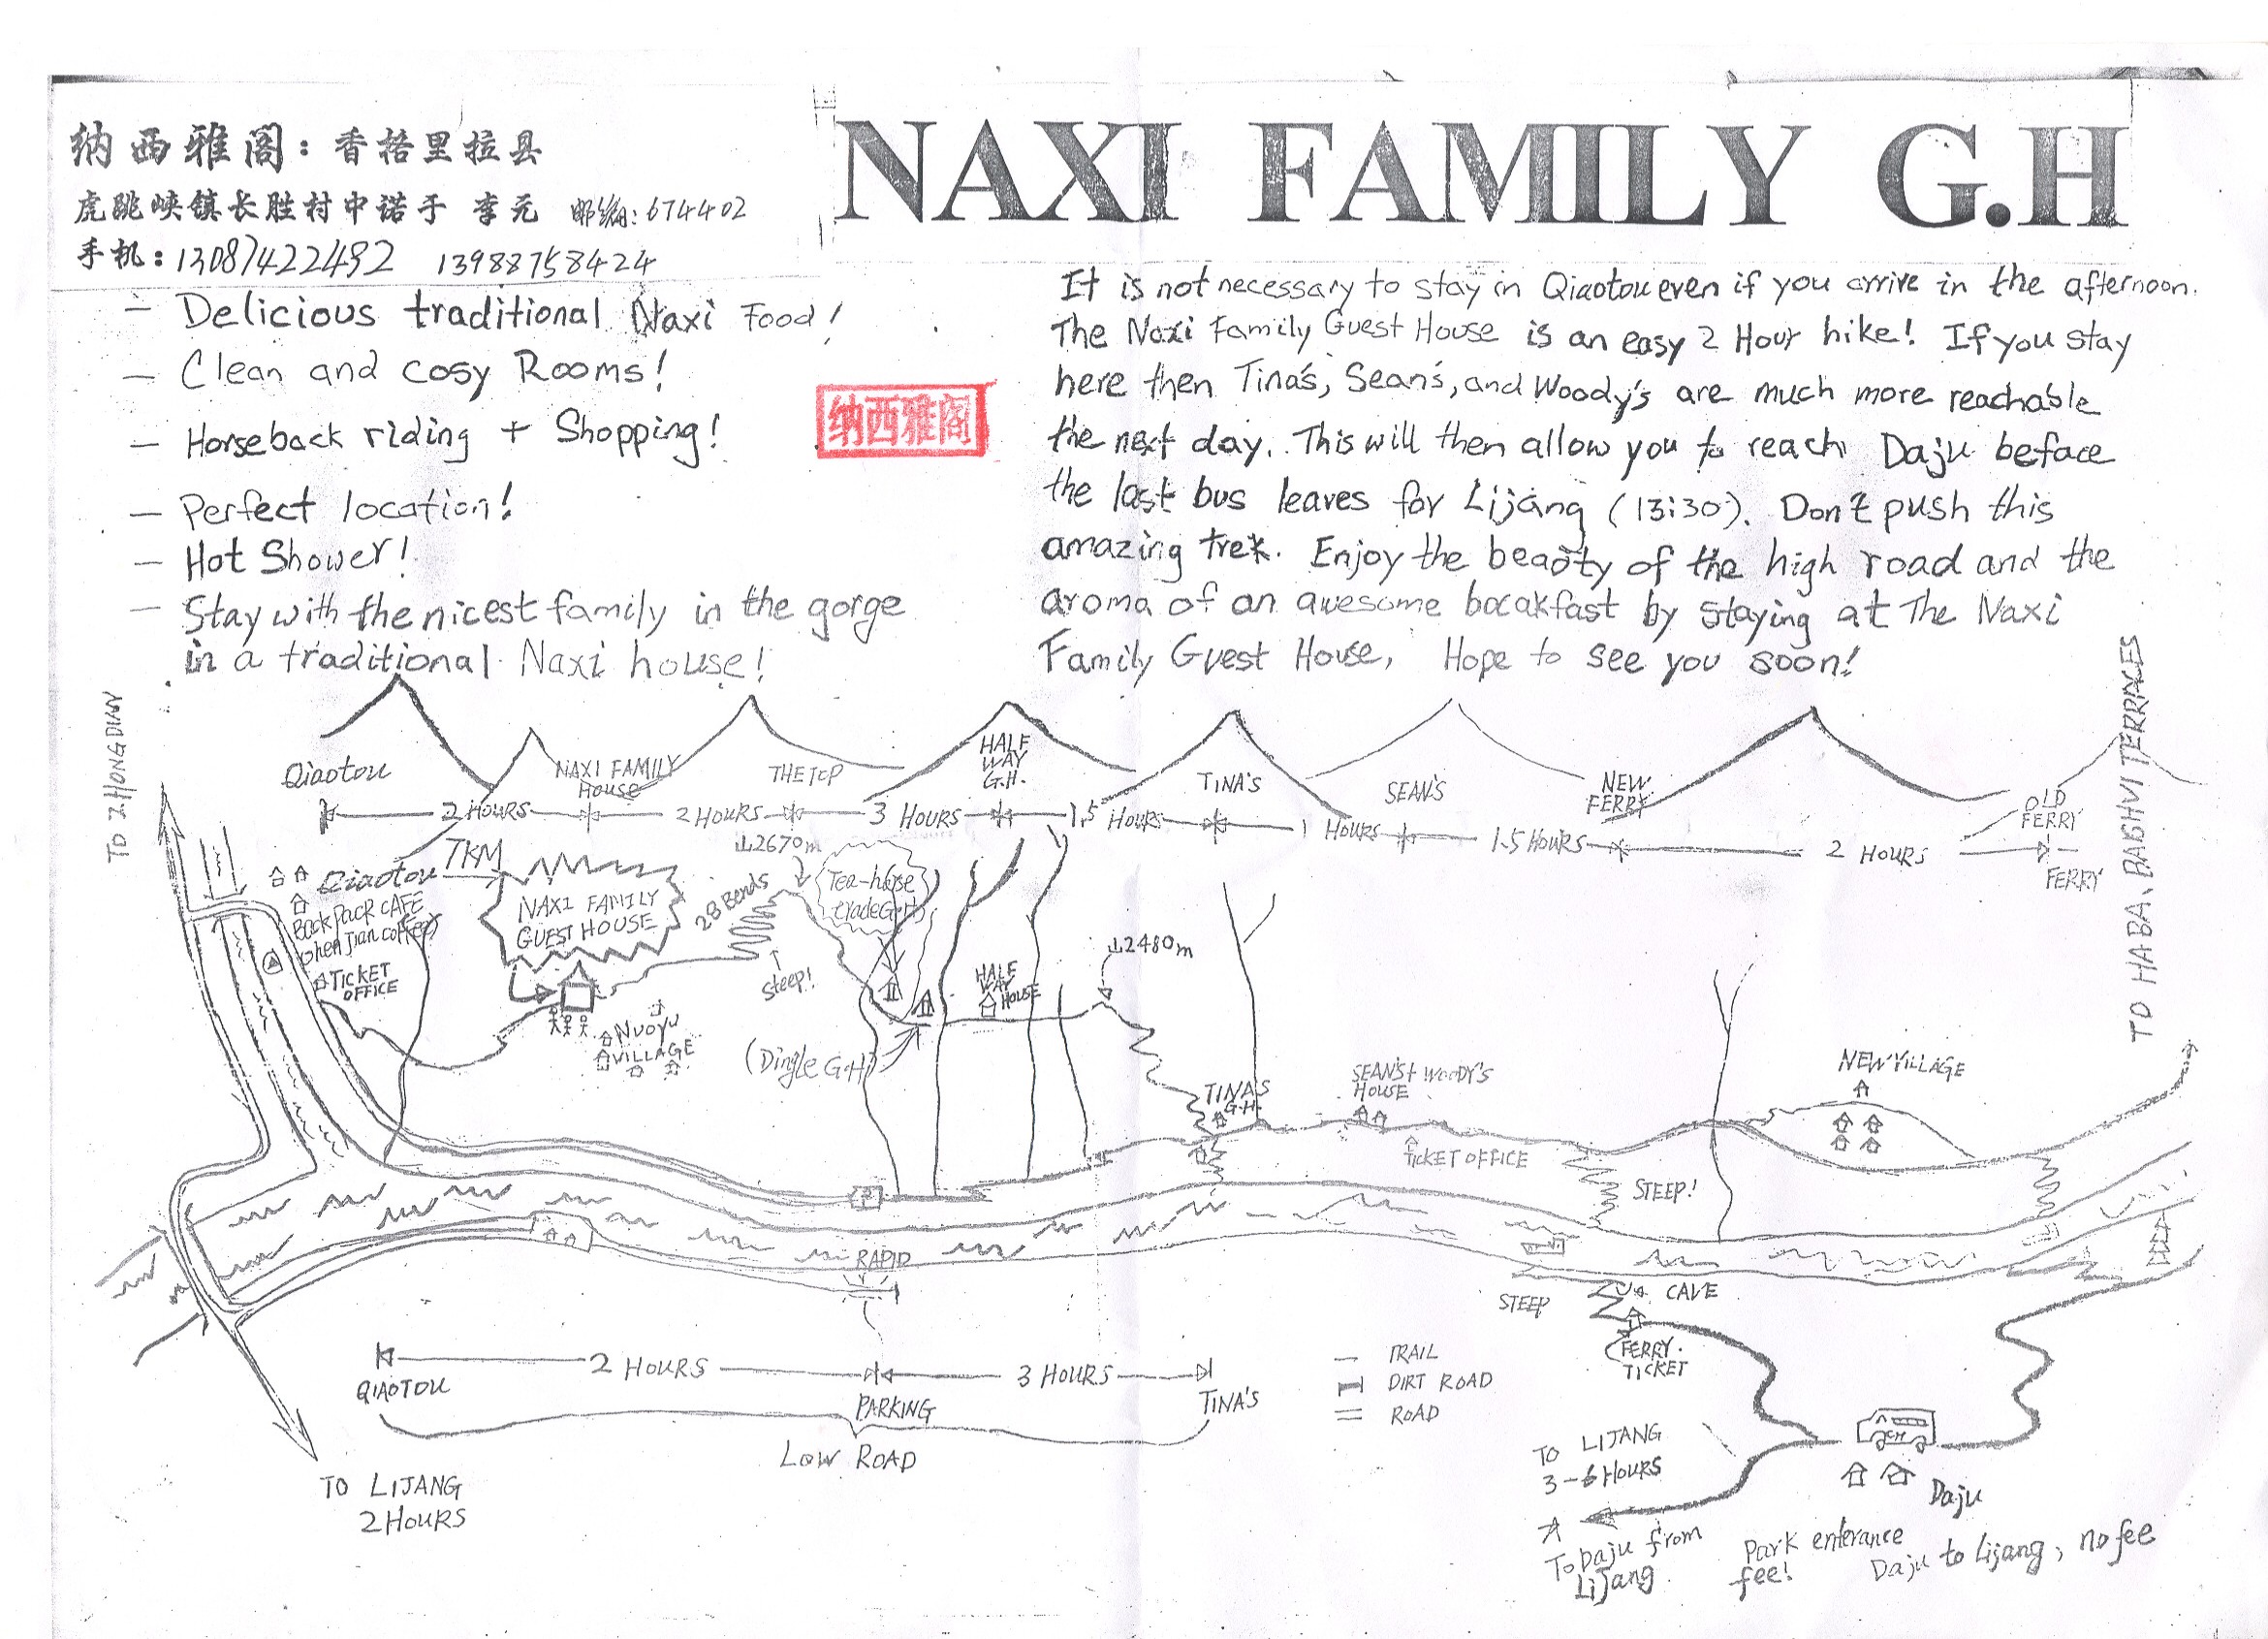 纳西雅阁：香格里拉县
虎跳峡镇长胜村中诺于 李元 邮编:674402
手机：13087422492 13988758424
NAXI FAMILY G.H
- Delicious traditional Naxi Food!
- Clean and cosy Rooms!
- Horseback riding + Shopping!
- Perfect location!
- Hot Shower!
- Stay with the nicest family in the gorge
in a traditional Naxi house!
纳西雅阁
It is not necessary to stay in Qiaotou even if you arrive in the afternoon.
The Naxi Family Guest House is an easy 2 Hour hike! If you stay
here then Tina's, Sean's, and Woody's are much more reachable
the next day. This will then allow you to reach Daju beface
the last bus leaves for Lijang (13:30). Don't push this
amazing trek. Enjoy the beaoty of the high road and the
aroma of an awesome bocakfast by staying at The Naxi
Family Guest House, Hope to see you soon!
TO ZHONGDIAN
Qiaotou
NAXI FAMILY
HOUSE
THE TOP
HALF
WAY
G.H.
TINA'S
SEAN'S
NEW
FERRY
OLD
FERRY
2 HOURS
2 HOURS
3 HOURS
1,5 HOURS
1 HOURS
1.5 HOURS
2 HOURS
FERRY
TO HABA, BAISHVI TERRACES
Qiaotou
7KM
BackPack CAFE
TICKET
OFFICE
NAXI FAMILY
GUEST HOUSE
28 Bends
山2670m
steep!
Tea-horse
trade G.H
HALF
WAY
HOUSE
山2480m
NUOYU
VILLAGE
(Dingle G.H)
TINA'S
G.H.
SEAN'S + WOODY'S
HOUSE
TICKET OFFICE
NEW VILLAGE
STEEP!
P
RAPID
STEEP
CAVE
FERRY.
TICKET
QIAOTOU
2 HOURS
PARKING
3 HOURS
TINA'S
LOW ROAD
TRAIL
DIRT ROAD
ROAD
TO LIJANG
2 HOURS
TO LIJANG
3-6 HOURS
Daju
To Daju from
LiJang
Park enterance
fee!
Daju to Lijang, no fee